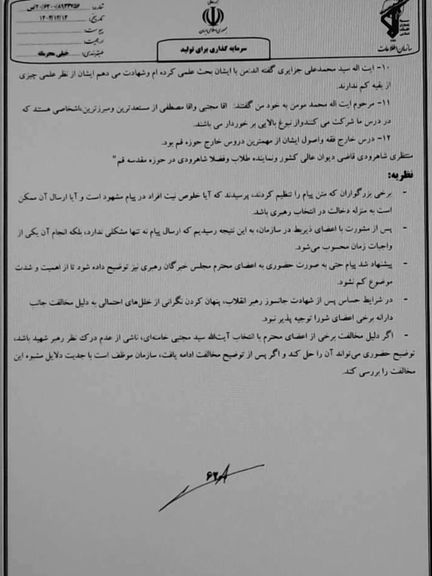 شماره: ۸۹۳۳۷۵۶/-۶۲۰۰/۲۰/ص
تاریخ: ۱۴۰۴/۱۲/۱۳
پیوست:
طبقه‌بندی: خیلی محرمانه
جمهوری اسلامی ایران
سرمایه گذاری برای تولید
سازمان اطلاعات
۱۰- آیت اله سید محمدعلی جزایری گفته اند:من با ایشان بحث علمی کرده ام وشهادت می دهم ایشان از نظر علمی چیزی
از بقیه کم ندارند.
۱۱- مرحوم آیت اله محمد مومن به خود من گفتند: اقا مجتبی واقا مصطفی از مستعدترین ومبرزترین‌باشخاصی هستند که
در درس ما شرکت می کنندواز نبوغ بالایی بر خوردار می باشند.
۱۲- درس خارج فقه واصول ایشان از مهمترین دروس خارج حوزه قم بود.
منتظری شاهرودی قاضی دیوان عالی کشور ونماینده طلاب وفضلا شاهرودی در حوزه مقدسه قم"
نظریه:
- برخی بزرگواران که متن پیام را تنظیم کردند، پرسیدند که آیا خلوص نیت افراد در پیام مشهود است و آیا ارسال آن ممکن
است به منزله دخالت در انتخاب رهبری باشد.
- پس از مشورت با اعضای ذیربط در سازمان، به این نتیجه رسیدیم که ارسال پیام نه تنها مشکلی ندارد، بلکه انجام آن یکی از
واجبات زمان محسوب می‌شود.
- پیشنهاد شد پیام حتی به صورت حضوری به اعضای محترم مجلس خبرگان رهبری نیز توضیح داده شود تا از اهمیت و شدت
موضوع کم نشود.
- در شرایط حساس پس از شهادت جانسوز رهبر انقلاب، پنهان کردن نگرانی از خلل‌های احتمالی به دلیل مخالفت جانب
دارانه برخی اعضای شورا توجیه پذیر نبود.
- اگر دلیل مخالفت برخی از اعضای محترم با انتخاب آیت‌الله سید مجتبی خامنه‌ای، ناشی از عدم درک نظر رهبر شهید باشد،
توضیح حضوری می‌تواند آن را حل کند و اگر پس از توضیح مخالفت ادامه یافت، سازمان موظف است با جدیت دلایل مشبوه این
مخالفت را بررسی کند.